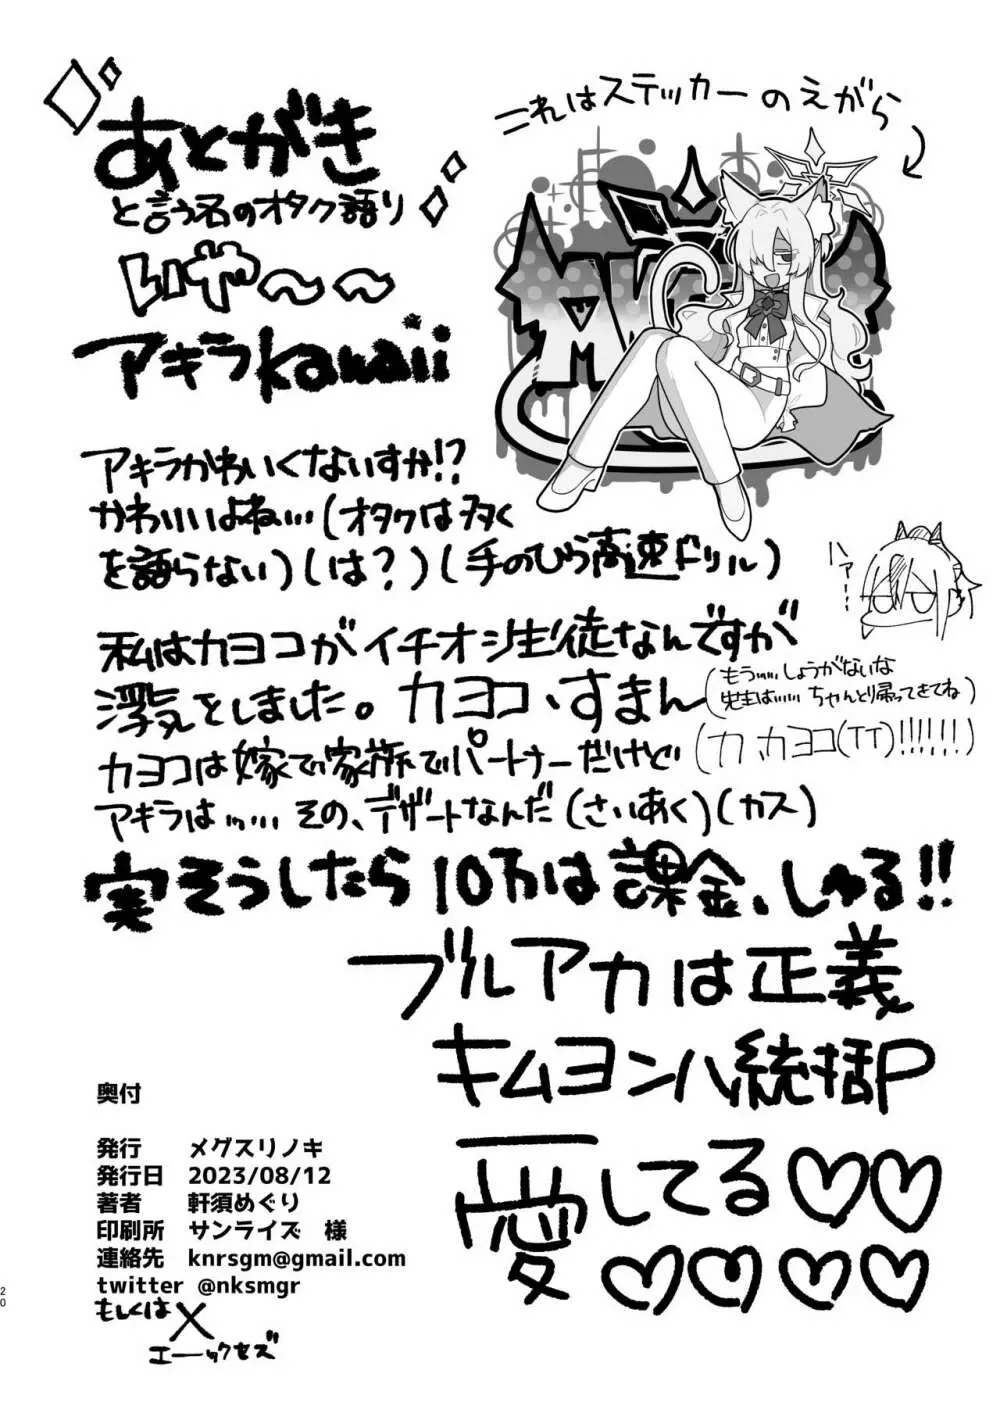 あとがき
と言う名のオタク語り
いや〜〜
アキラkawaii
これはステッカーのえがら
アキラかわいくないすか!?
かわいいよね…(オタクは多く
を語らない)(は?)(手のひら高速ドリル)
ハァー…
私はカヨコがイチオシ生徒なんですが
浮気をしました。カヨコ、すまん
(もう……しょうがないな
先生は…… ちゃんと帰ってきてね)
カヨコは嫁で家族でパートナーだけど
(カ、カヨコ(TT)!!!!!!)
アキラは…… その、デザートなんだ(さいあく)(カス)
実そうしたら10万は課金、しゅる!!
ブルアカは正義
キムヨンハ統括P
愛してる♡♡
♡♡♡♡
奥付
発行 メグスリノキ
発行日 2023/08/12
著者 軒須めぐり
印刷所 サンライズ 様
連絡先 knrsgm@gmail.com
twitter @nksmgr
もしくは X
エーックセズ
20